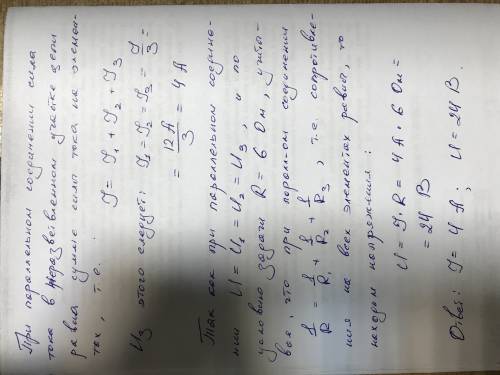 При параллельном соединении сила
тока в неразветвленном участке цепи
равна сумме силы тока на элемен-
тах, т.е. : I = I₁ + I₂ + I₃
Из этого следует: I₁ = I₂ = I₃ = I/3 =
= 12 А/3 = 4 А
Так как при параллельном соедине-
нии U = U₁ = U₂ = U₃, и по
условию задачи R = 6 Ом, учиты-
вая, что при паралл-ом соединении
1/R = 1/R₁ + 1/R₂ + 1/R₃, т.е. сопротивле-
ния на всех элементах равны, то
находим напряжения:
U = I · R = 4 А · 6 Ом =
= 24 В
Ответ: I = 4 А; U = 24 В.